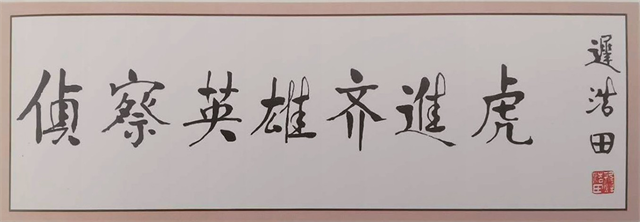 偵察英雄齐進虎
遲浩田